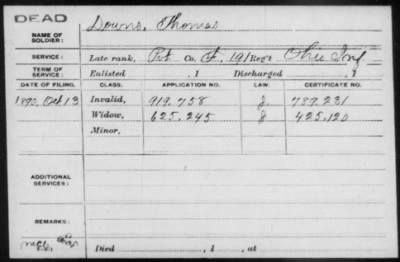 DEAD
NAME OF SOLDIER: Downs, Thomas
SERVICE: Late rank, Pvt Co. F, 191 Reg't Ohio Inf
TERM OF SERVICE: Enlisted , 1 Discharged , 1
DATE OF FILING. CLASS. APPLICATION NO. LAW. CERTIFICATE NO.
1890, Oct 13 Invalid, 919.758 J. 789.231
Widow, 625.245 J 425.120
Minor,
ADDITIONAL SERVICES:
REMARKS:
Died , 1 , at